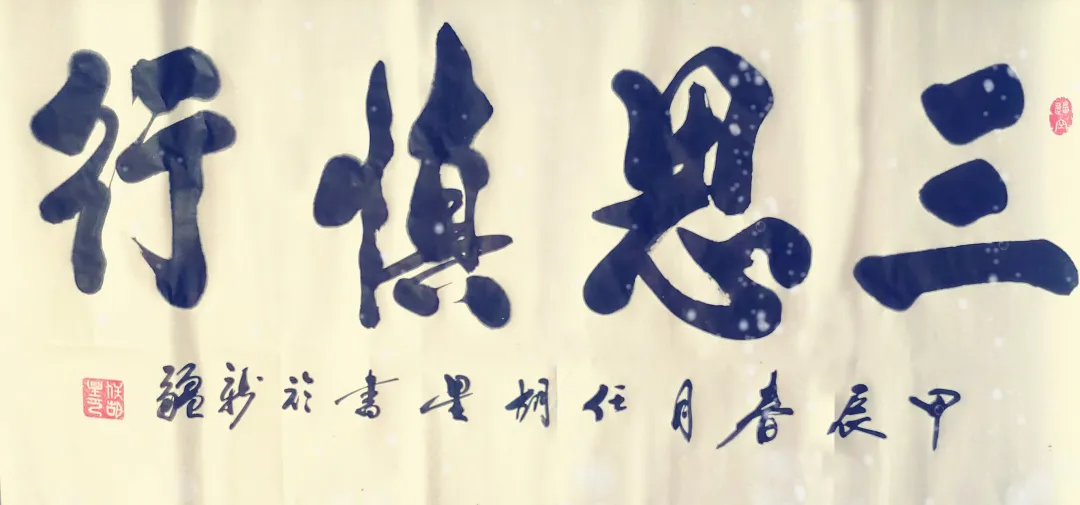 三思慎行
甲辰春月任胡墨書於新疆